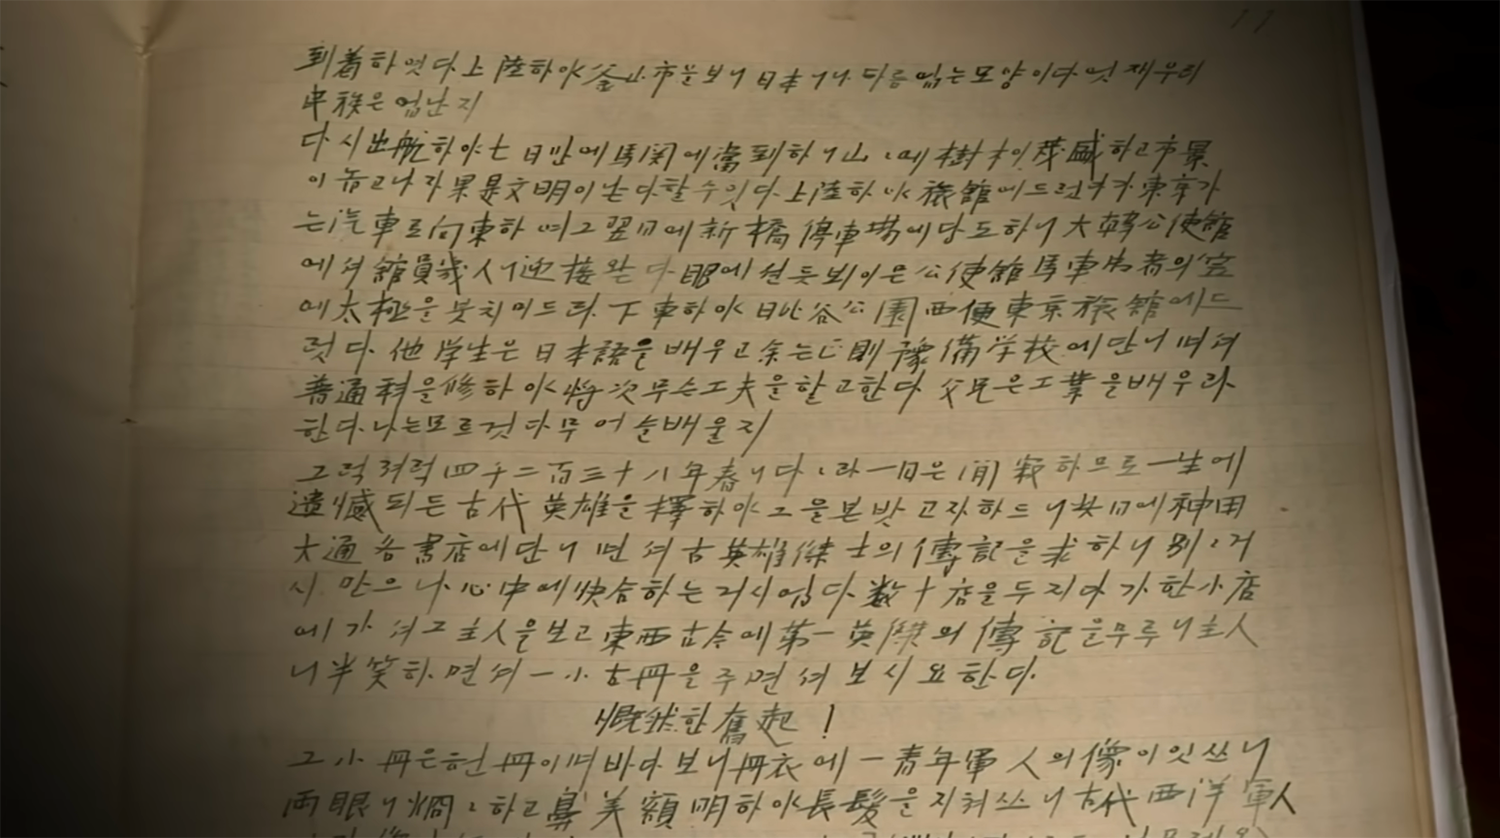 到着하엿다. 上陸하야 釜山市를 보니 日本이나 다름 업는 모양이다. 엇재 우리
民族은 업난지
다시 出航하야 七日만에 馬関에 當到하니 山에 樹木이 茂盛하고 市景
이 놉고나 果是文明이 는다할 수 잇다. 上陸하야 旅館에 드럿다가 東京가
는 汽車로 向東하며 그 翌日에 新橋停車場에 당도하니 大韓公使館
에셔 館員幾人이 迎接완다 眼에 션듯 뵈이은 公使館馬車 의
에 太極을 붓치미드라. 下車하야 日比谷公園西便東京旅館에 드
럿다. 他学生은 日本語을 배우고 余는 正則豫備学校에 단니며셔
普通科을 修하야 将次 무슨 工夫을 할고 한다. 父兄은 工業을 배우라
한다. 나는 모르것다 무어슬 배울지
그럭져럭 四千二百三十八年春니다. 一日은 閒寂하므로 一生에
遺憾되든 古代英雄을 擇하야 그을 본밧고자 하드니 其日에 神田
大通各書店에 단니면셔 古英雄傑士의 傳記을 求하니 別別거
시 만으나 心中에 快合하는 거시 업다. 数十店을 두지다가 한 小店
에 가셔 그 主人을 보고 東西古今에 第一英傑의 傳記을 무루니 主人
니 半笑하면셔 一小古冊을 주면셔 보시요 한다.
慨然한 奮起!
그 小冊은 헌冊이며 바다보니 冊衣에 一青年軍人의 像이 잇쓰니
両眼니 炯炯하고 鼻美額明하야 長髮을 지쳐쓰니 古代西洋軍人